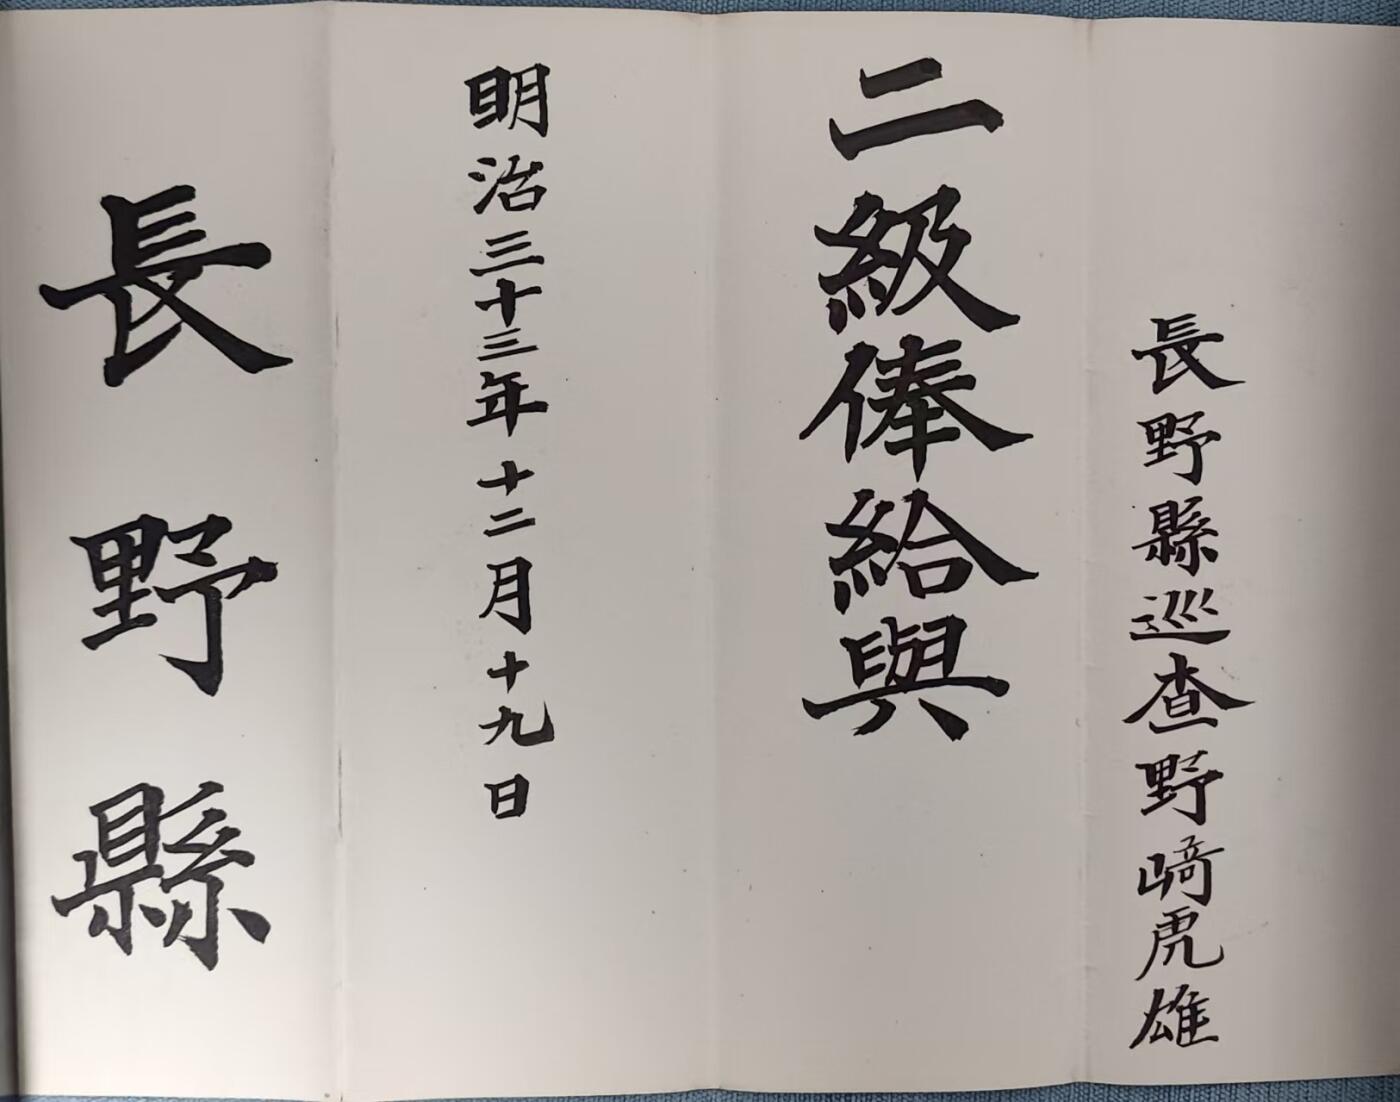 長野縣巡查野﨑虎雄
二級俸給與
明治三十三年十二月十九日
長野縣